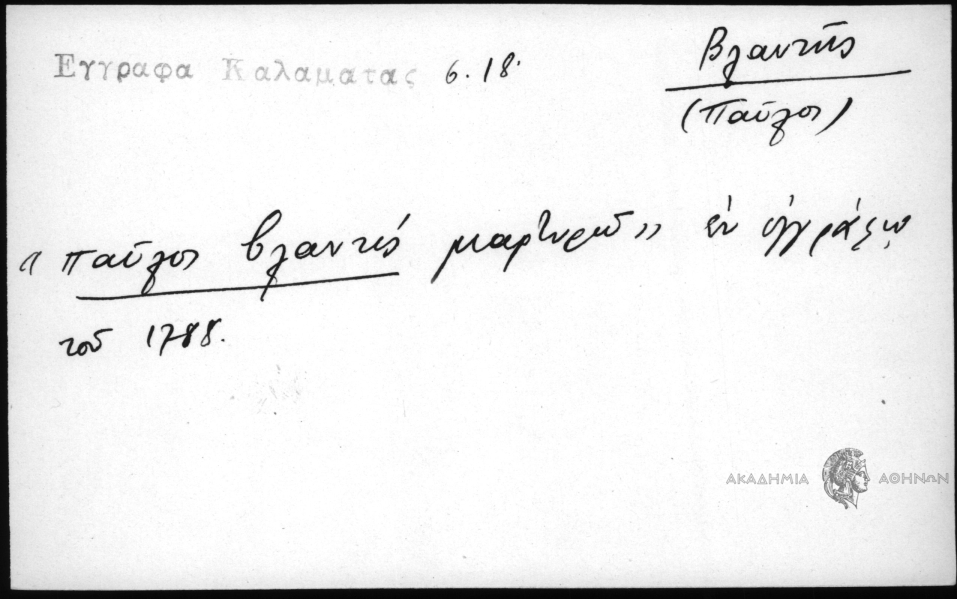 Εγγραφα Καλαματας 6.18.
Βλαντής
(Παῦλος)
« παῦλος βλαντής μαρτυρῶ » ἐν ἐγγράφῳ
τοῦ 1788.
ΑΚΑΔΗΜΙΑ ΑΘΗΝΩΝ